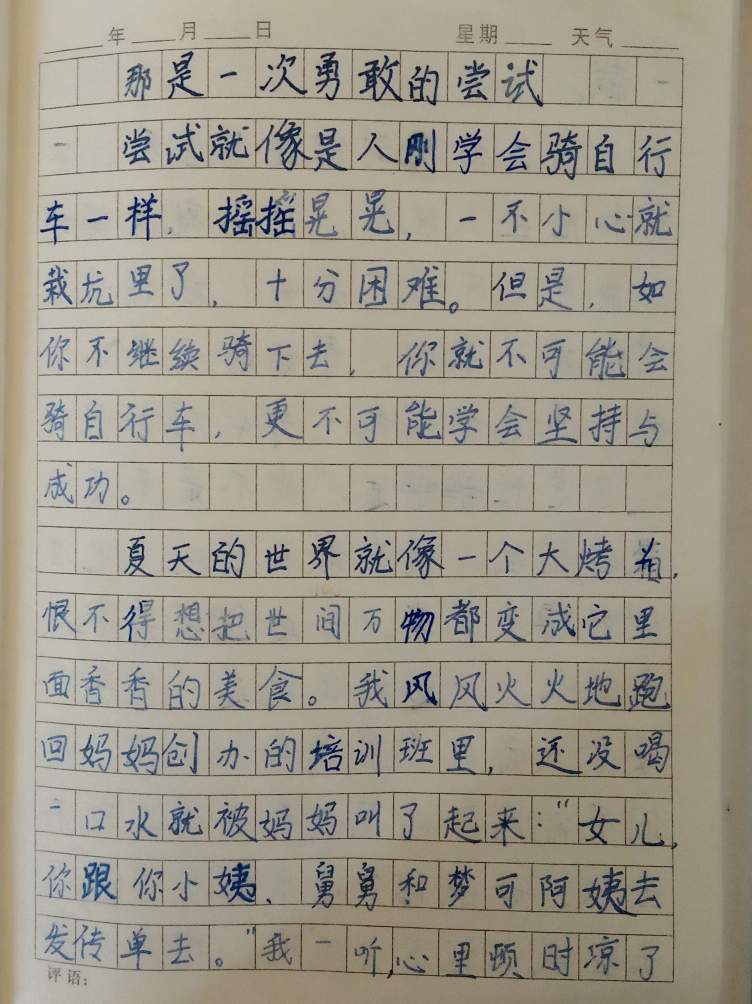 年 月 日 星期 天气
那是一次勇敢的尝试
尝试就像是人刚学会骑自行
车一样，摇摇晃晃，一不小心就
栽坑里了，十分困难。但是，如
你不继续骑下去，你就不可能会
骑自行车，更不可能学会坚持与
成功。
夏天的世界就像一个大烤箱，
恨不得想把世间万物都变成它里
面香香的美食。我风风火火地跑
回妈妈创办的培训班里，还没喝
一口水就被妈妈叫了起来：“女儿，
你跟你小姨、舅舅和梦可阿姨去
发传单去。”我一听，心里顿时凉了
评语：